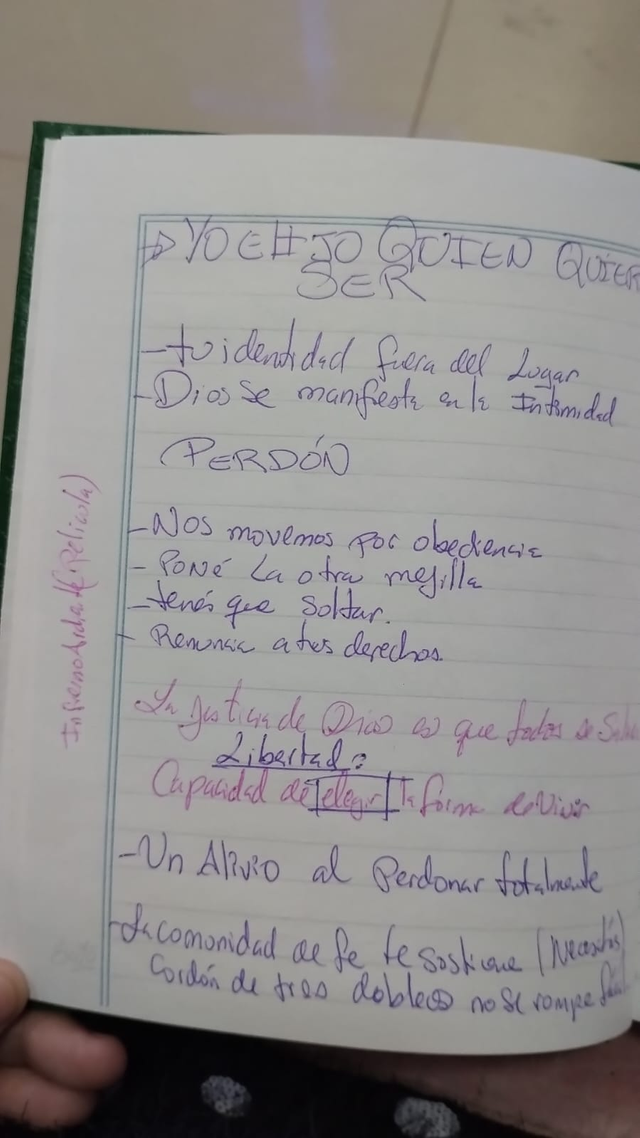 → YO ELIJO QUIEN QUIER
SER
- tu identidad fuera del Lugar
- Dios se manifiesta en la Intimidad
PERDÓN
- Nos movemos por obediencia
- PONÉ La otra mejilla
- tenés que Soltar.
- Renuncia a tus derechos.
La justicia de Dios es que todos se Salve
Libertad:
Capacidad de elegir la forma de Vivir
- Un Alivio al Perdonar totalmente
- La comunidad de fe te sostiene (Necesitás)
Cordón de tres dobleces no se rompe fácil
(Película)